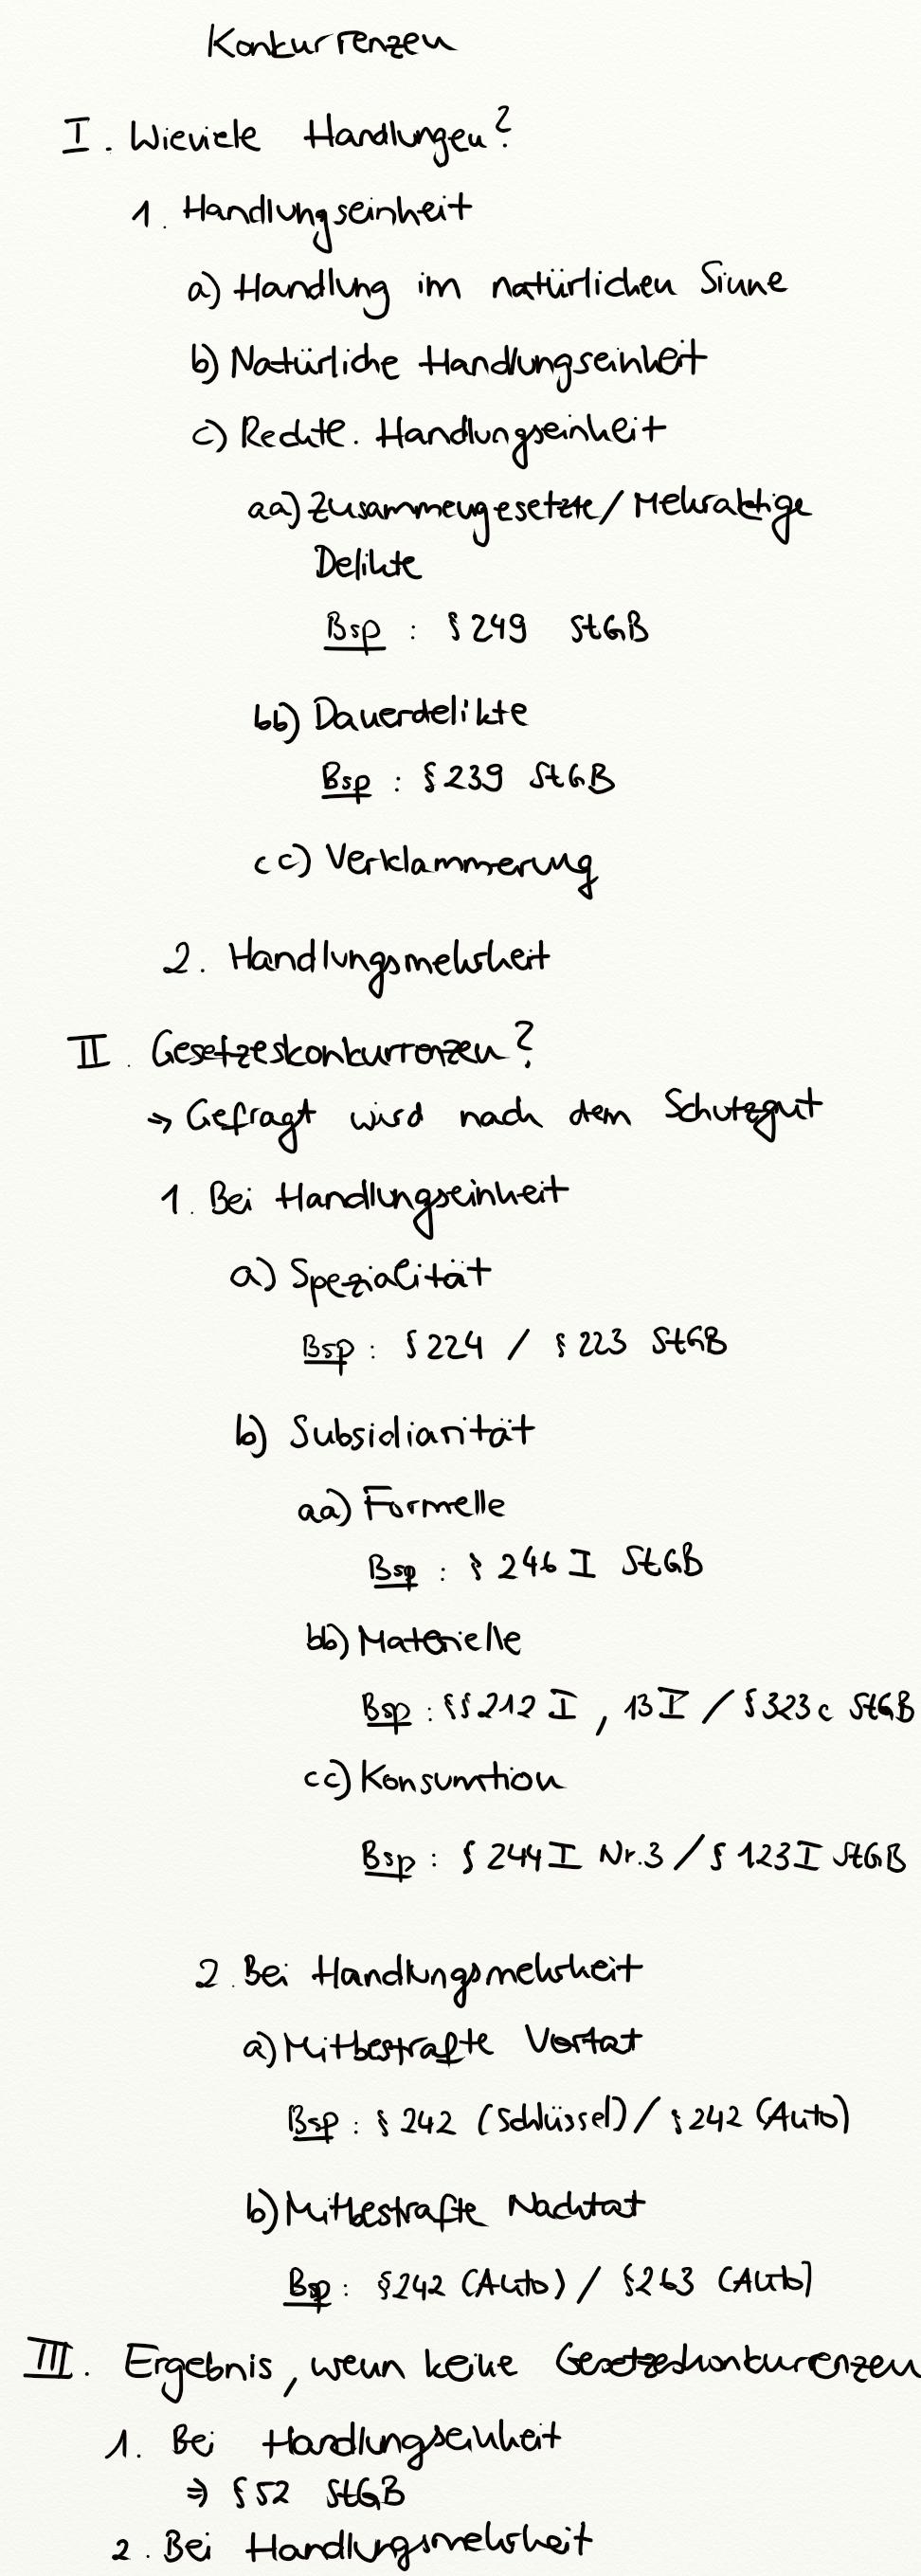 Konkurrenzen
I. Wieviele Handlungen?
1. Handlungseinheit
a) Handlung im natürlichen Sinne
b) Natürliche Handlungseinheit
c) Rechte. Handlungseinheit
aa) Zusammengesetzte/Mehraktige
Delikte
Bsp : § 249 StGB
bb) Dauerdelikte
Bsp : § 239 StGB
cc) Verklammerung
2. Handlungsmehrheit
II. Gesetzeskonkurrenzen?
⇒ Gefragt wird nach dem Schutzgut
1. Bei Handlungseinheit
a) Spezialität
Bsp : § 224 / § 223 StGB
b) Subsidiarität
aa) Formelle
Bsp : § 246 I StGB
bb) Materielle
Bsp : §§ 212 I , 13 I / § 323c StGB
cc) Konsumtion
Bsp : § 244 I Nr.3 / § 123 I StGB
2. Bei Handlungsmehrheit
a) Mitbestrafte Vortat
Bsp : § 242 (Schlüssel) / § 242 (Auto)
b) Mitbestrafte Nachtat
Bsp : § 242 (Auto) / § 263 (Auto)
III. Ergebnis, wenn keine Gesetzeskonkurrenzen
1. Bei Handlungseinheit
⇒ § 52 StGB
2. Bei Handlungsmehrheit